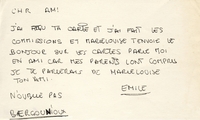 CHR AMI
J'AI REÇU TA CARTE ET J'AI FAIT LES
COMMISSIONS ET MARIELOUISE T'ENVOIE LE
BONJOUR SUR LES CARTES PARLE MOI
EN AMI CAR MES PARENTS L'ONT COMPRIS
JE TE PARLERAIS DE MARIELOUISE
TON AMI.
EMILE
N'OUBLIE PAS
BERGOUNIOUX